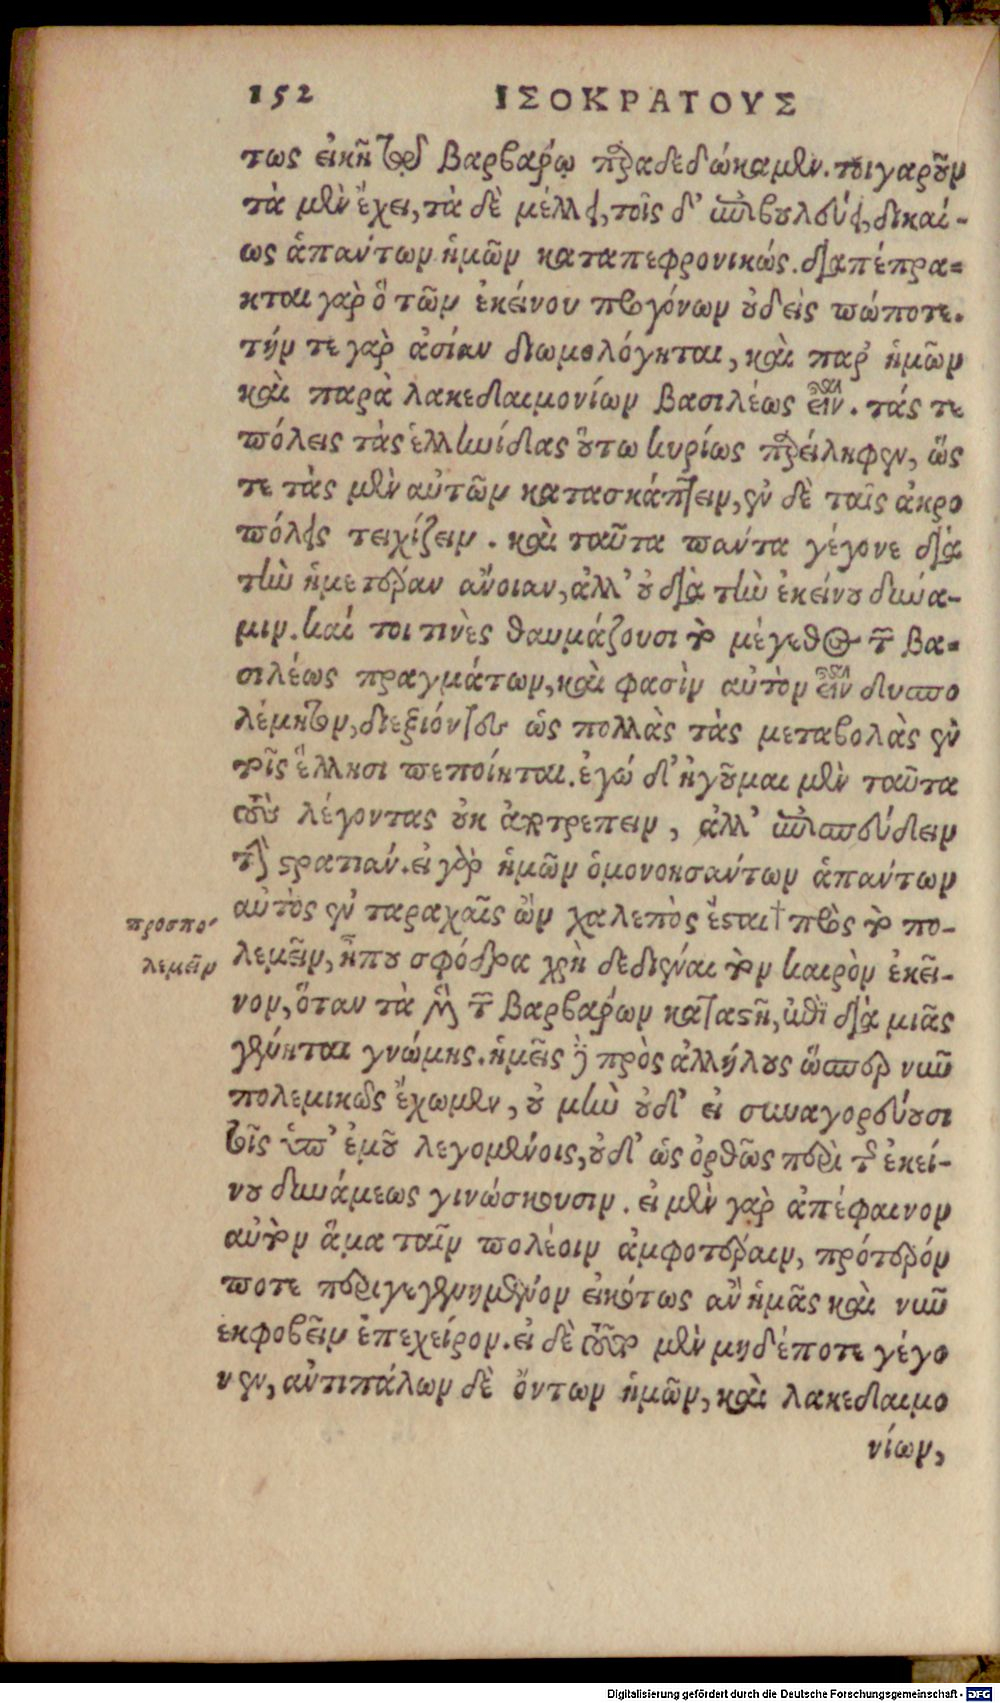 152 ΙΣΟΚΡΑΤΟΥΣ
τως εἰκῆ τῷ βαρβάρῳ παραδεδώκαμεν. τοιγαροῦν
τὰ μὲν ἔχει, τὰ δὲ μέλλει, τοῖς δ' ἐπιβουλεύει, δικαί-
ως ἁπάντων ἡμῶν καταπεφρονικώς. διαπέπρα-
κται γὰρ ὃ τῶν ἐκείνου προγόνων οὐδεὶς πώποτε.
τήν τε γὰρ ἀσίαν διωμολόγηται, καὶ παρ' ἡμῶν
καὶ παρὰ λακεδαιμονίων βασιλέως εἶναι. τάς τε
πόλεις τὰς ἑλληνίδας οὕτω κυρίως παρείληφεν, ὥς
τε τὰς μὲν αὐτῶν κατασκάπτειν, ἐν δὲ ταῖς ἀκρο
πόλεις τειχίζειν. καὶ ταῦτα πάντα γέγονε διὰ
τὴν ἡμετέραν ἄνοιαν, ἀλλ' οὐ διὰ τὴν ἐκείνου δύνα-
μιν. καί τοι τινὲς θαυμάζουσι τὸ μέγεθος τῶν βα-
σιλέως πραγμάτων, καὶ φασὶν αὐτὸν εἶναι δυσπο
λέμητον, διεξιόντες ὡς πολλὰς τὰς μεταβολὰς ἐν
τοῖς ἕλλησι πεποίηται. ἐγώ δ' ἡγοῦμαι μὲν ταῦτα
τοὺς λέγοντας οὐκ ἀποτρέπειν, ἀλλ' ἐπισπεύδειν
τὴν στρατιάν. εἰ γὰρ ἡμῶν ὁμονοησάντων ἁπάντων
αὐτὸς ἐν ταραχαῖς ὢν χαλεπὸς ἔσται† πρὸς τὸ πο-
λεμεῖν, ἦπου σφόδρα χρὴ δεδιέναι τὸν καιρὸν ἐκεῖ-
νον, ὅταν τὰ μὲν τῶν βαρβάρων καταστῇ, καὶ διὰ μιᾶς
γένηται γνώμης. ἡμεῖς δὲ πρὸς ἀλλήλους ὥσπερ νῦν
πολεμικῶς ἔχωμεν, οὐ μὴν οὐδ' εἰ συναγορεύουσι
τοῖς ὑπ' ἐμοῦ λεγομένοις, οὐδ' ὡς ὀρθῶς περὶ τῆς ἐκεί-
νου δυνάμεως γινώσκουσιν. εἰ μὲν γὰρ ἀπέφαινον
αὐτὸν ἅμα ταῖν πολέοιν ἀμφοτέραιν, πρότερόν
ποτε περιγεγενημένον εἰκότως ἂν ἡμᾶς καὶ νῦν
ἐκφοβεῖν ἐπεχείρον. εἰ δὲ τοῦτο μὲν μηδέποτε γέγο
νεν, ἀντιπάλων δὲ ὄντων ἡμῶν, καὶ λακεδαιμο
νίων,
προσπο-
λεμεῖν
Digitalisierung gefördert durch die Deutsche Forschungsgemeinschaft - DFG